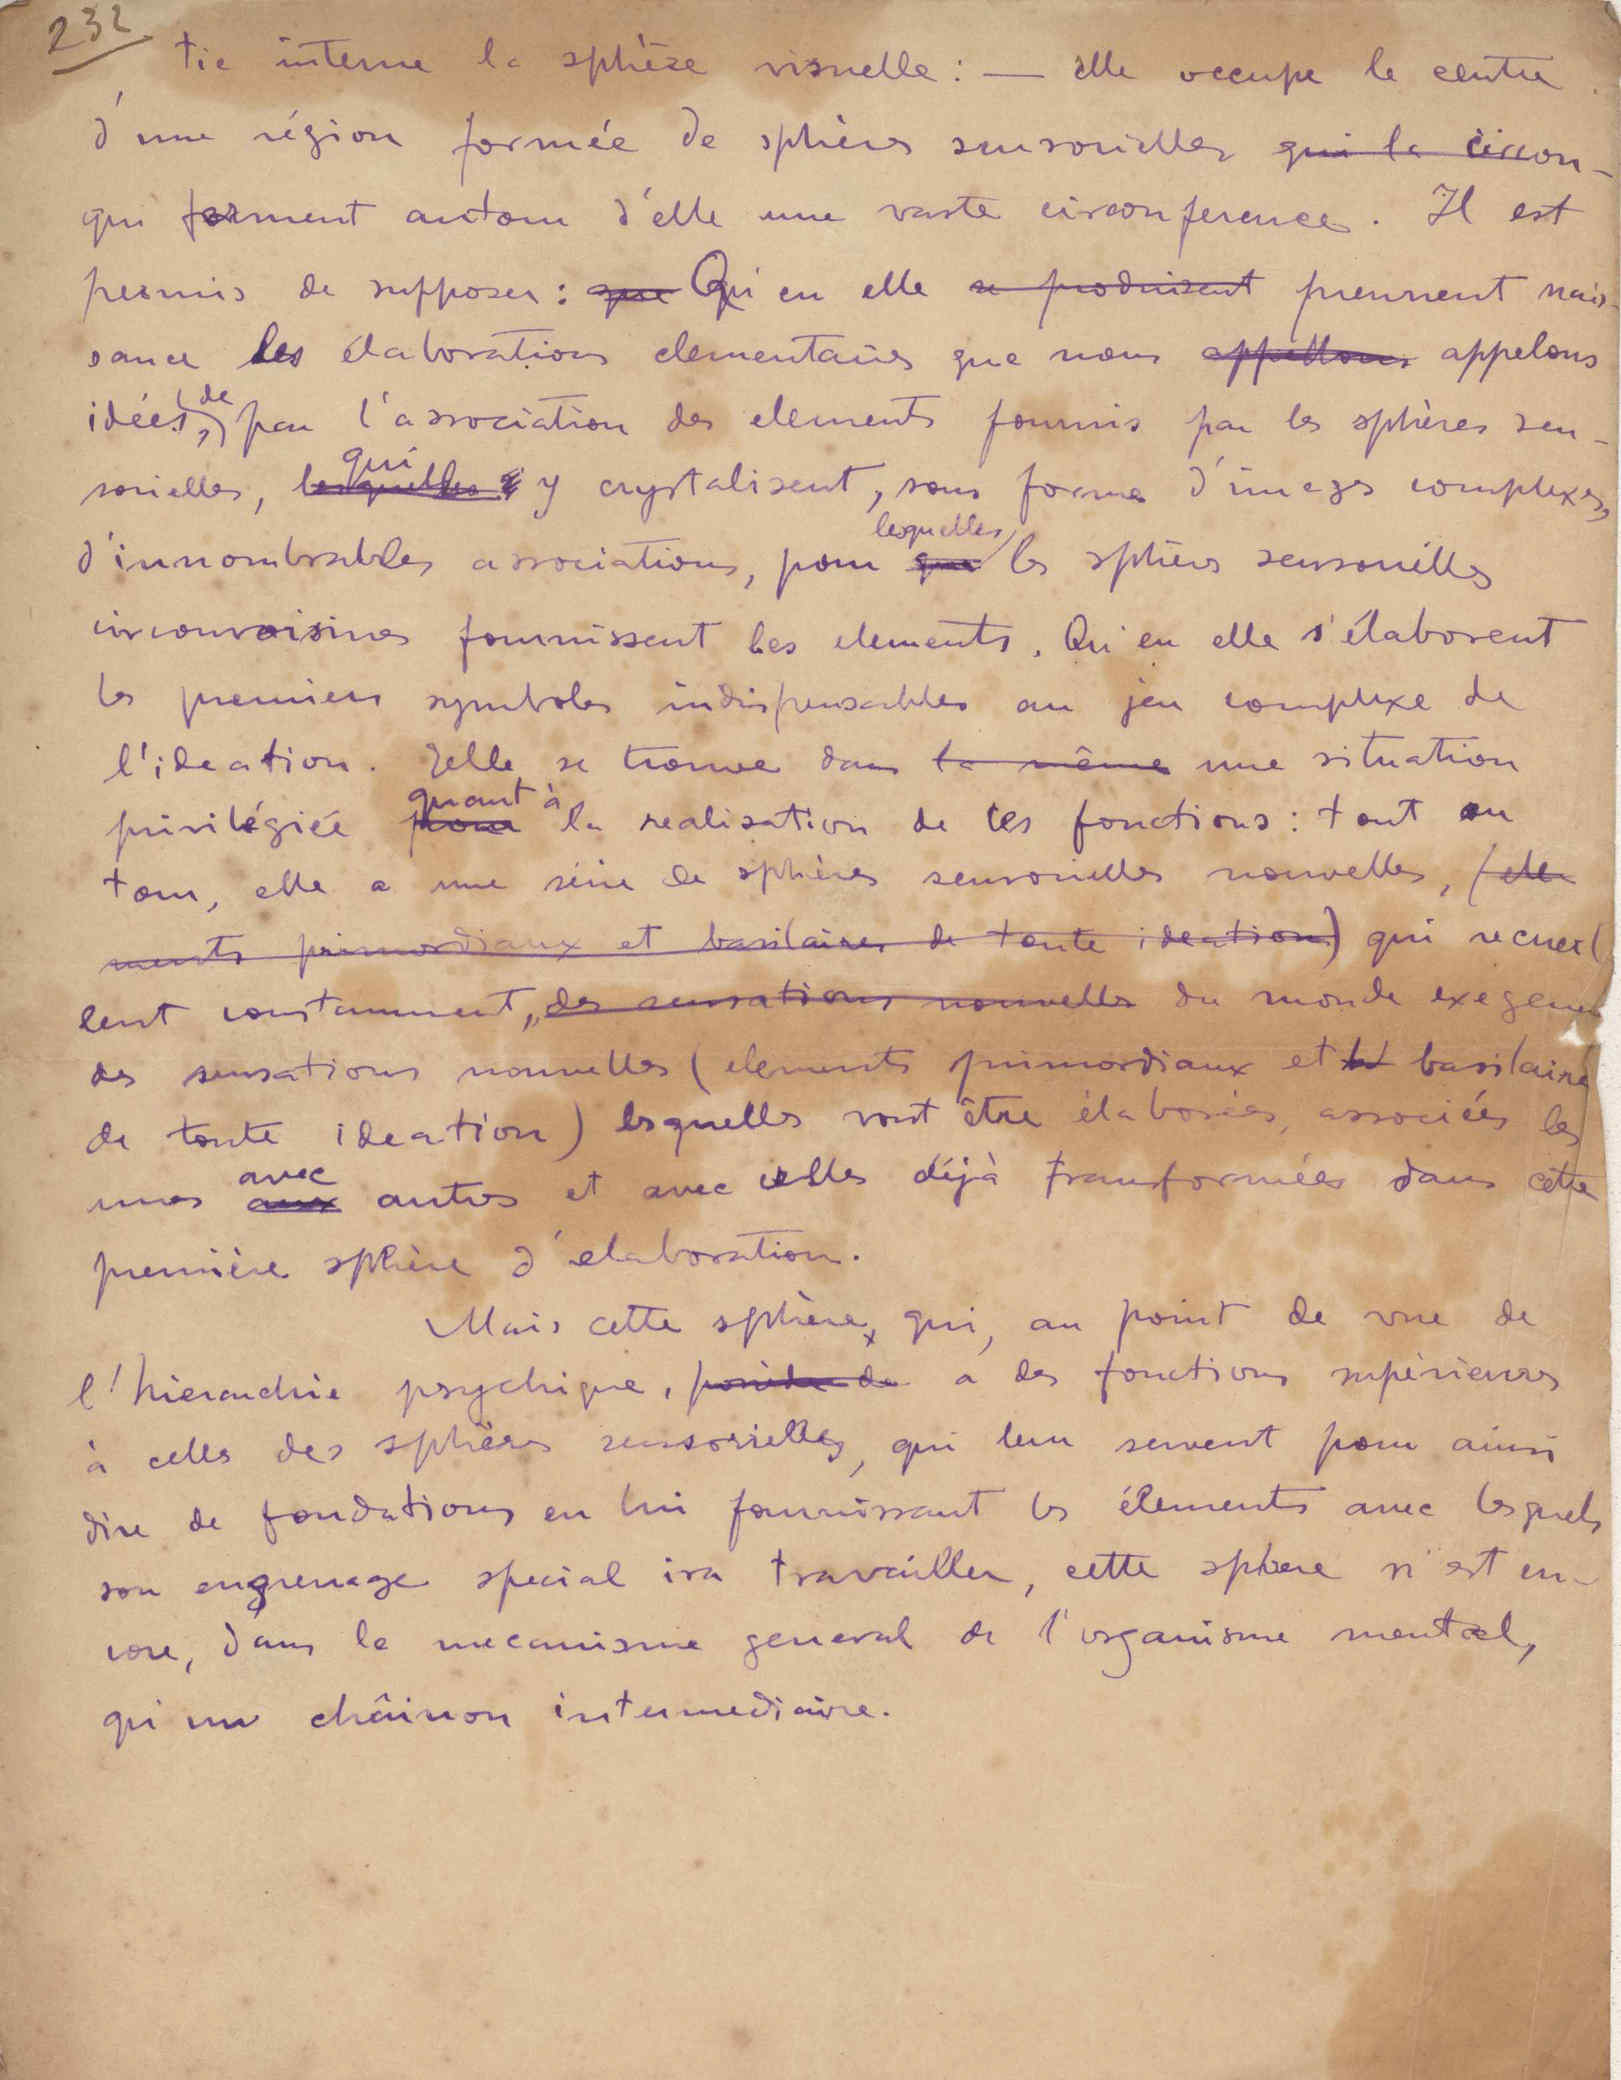 232
tie interne la sphère visuelle : — elle occupe le centre
d'une région formée de sphères sensorielles qui la circon-
qui forment autour d'elle une vaste circonference. Il est
permis de supposer : que Qu'en elle se produisent prennent nais-
sance les élaborations elementaires que nous appellons appelons
de
idées, par l'association des elements fournis par les sphères sen-
qui
sorielles, lesquelles s'y crystalisent, sous forme d'images complexes,
lesquelles
d'innombrables associations, pour que les sphères sensorielles
circonvoisines fournissent les elements. Qu'en elle s'élaborent
les premiers symboles indispensables au jeu complexe de
l'ideation. Elle se trouve dans la même une situation
quant à
privilégiée pour la realisation de ces fonctions : tout au
tour, elle a une série de sphères sensorielles nouvelles, (ele
ments primordiaux et basilaires de toute ideation) qui recueil
lent constamment, des sensations nouvelles du monde exegene
des sensations nouvelles (elements primordiaux et basilaires
de toute ideation) lesquelles vont être élaborées, associées les
avec
unes aux autres et avec celles déjà transformées dans cette
première sphère d'elaboration.
Mais cette sphère, qui, au point de vue de
l'hierarchie psychique, possède de a des fonctions supérieures
à celles des sphères sensorielles, qui leur servent pour ainsi
dire de fondations en lui fournissant les élements avec lesquels
son engrenage special ira travailler, cette sphere n'est en-
core, dans le mecanisme general de l'organisme mental,
qu'un chaînon intermediaire.